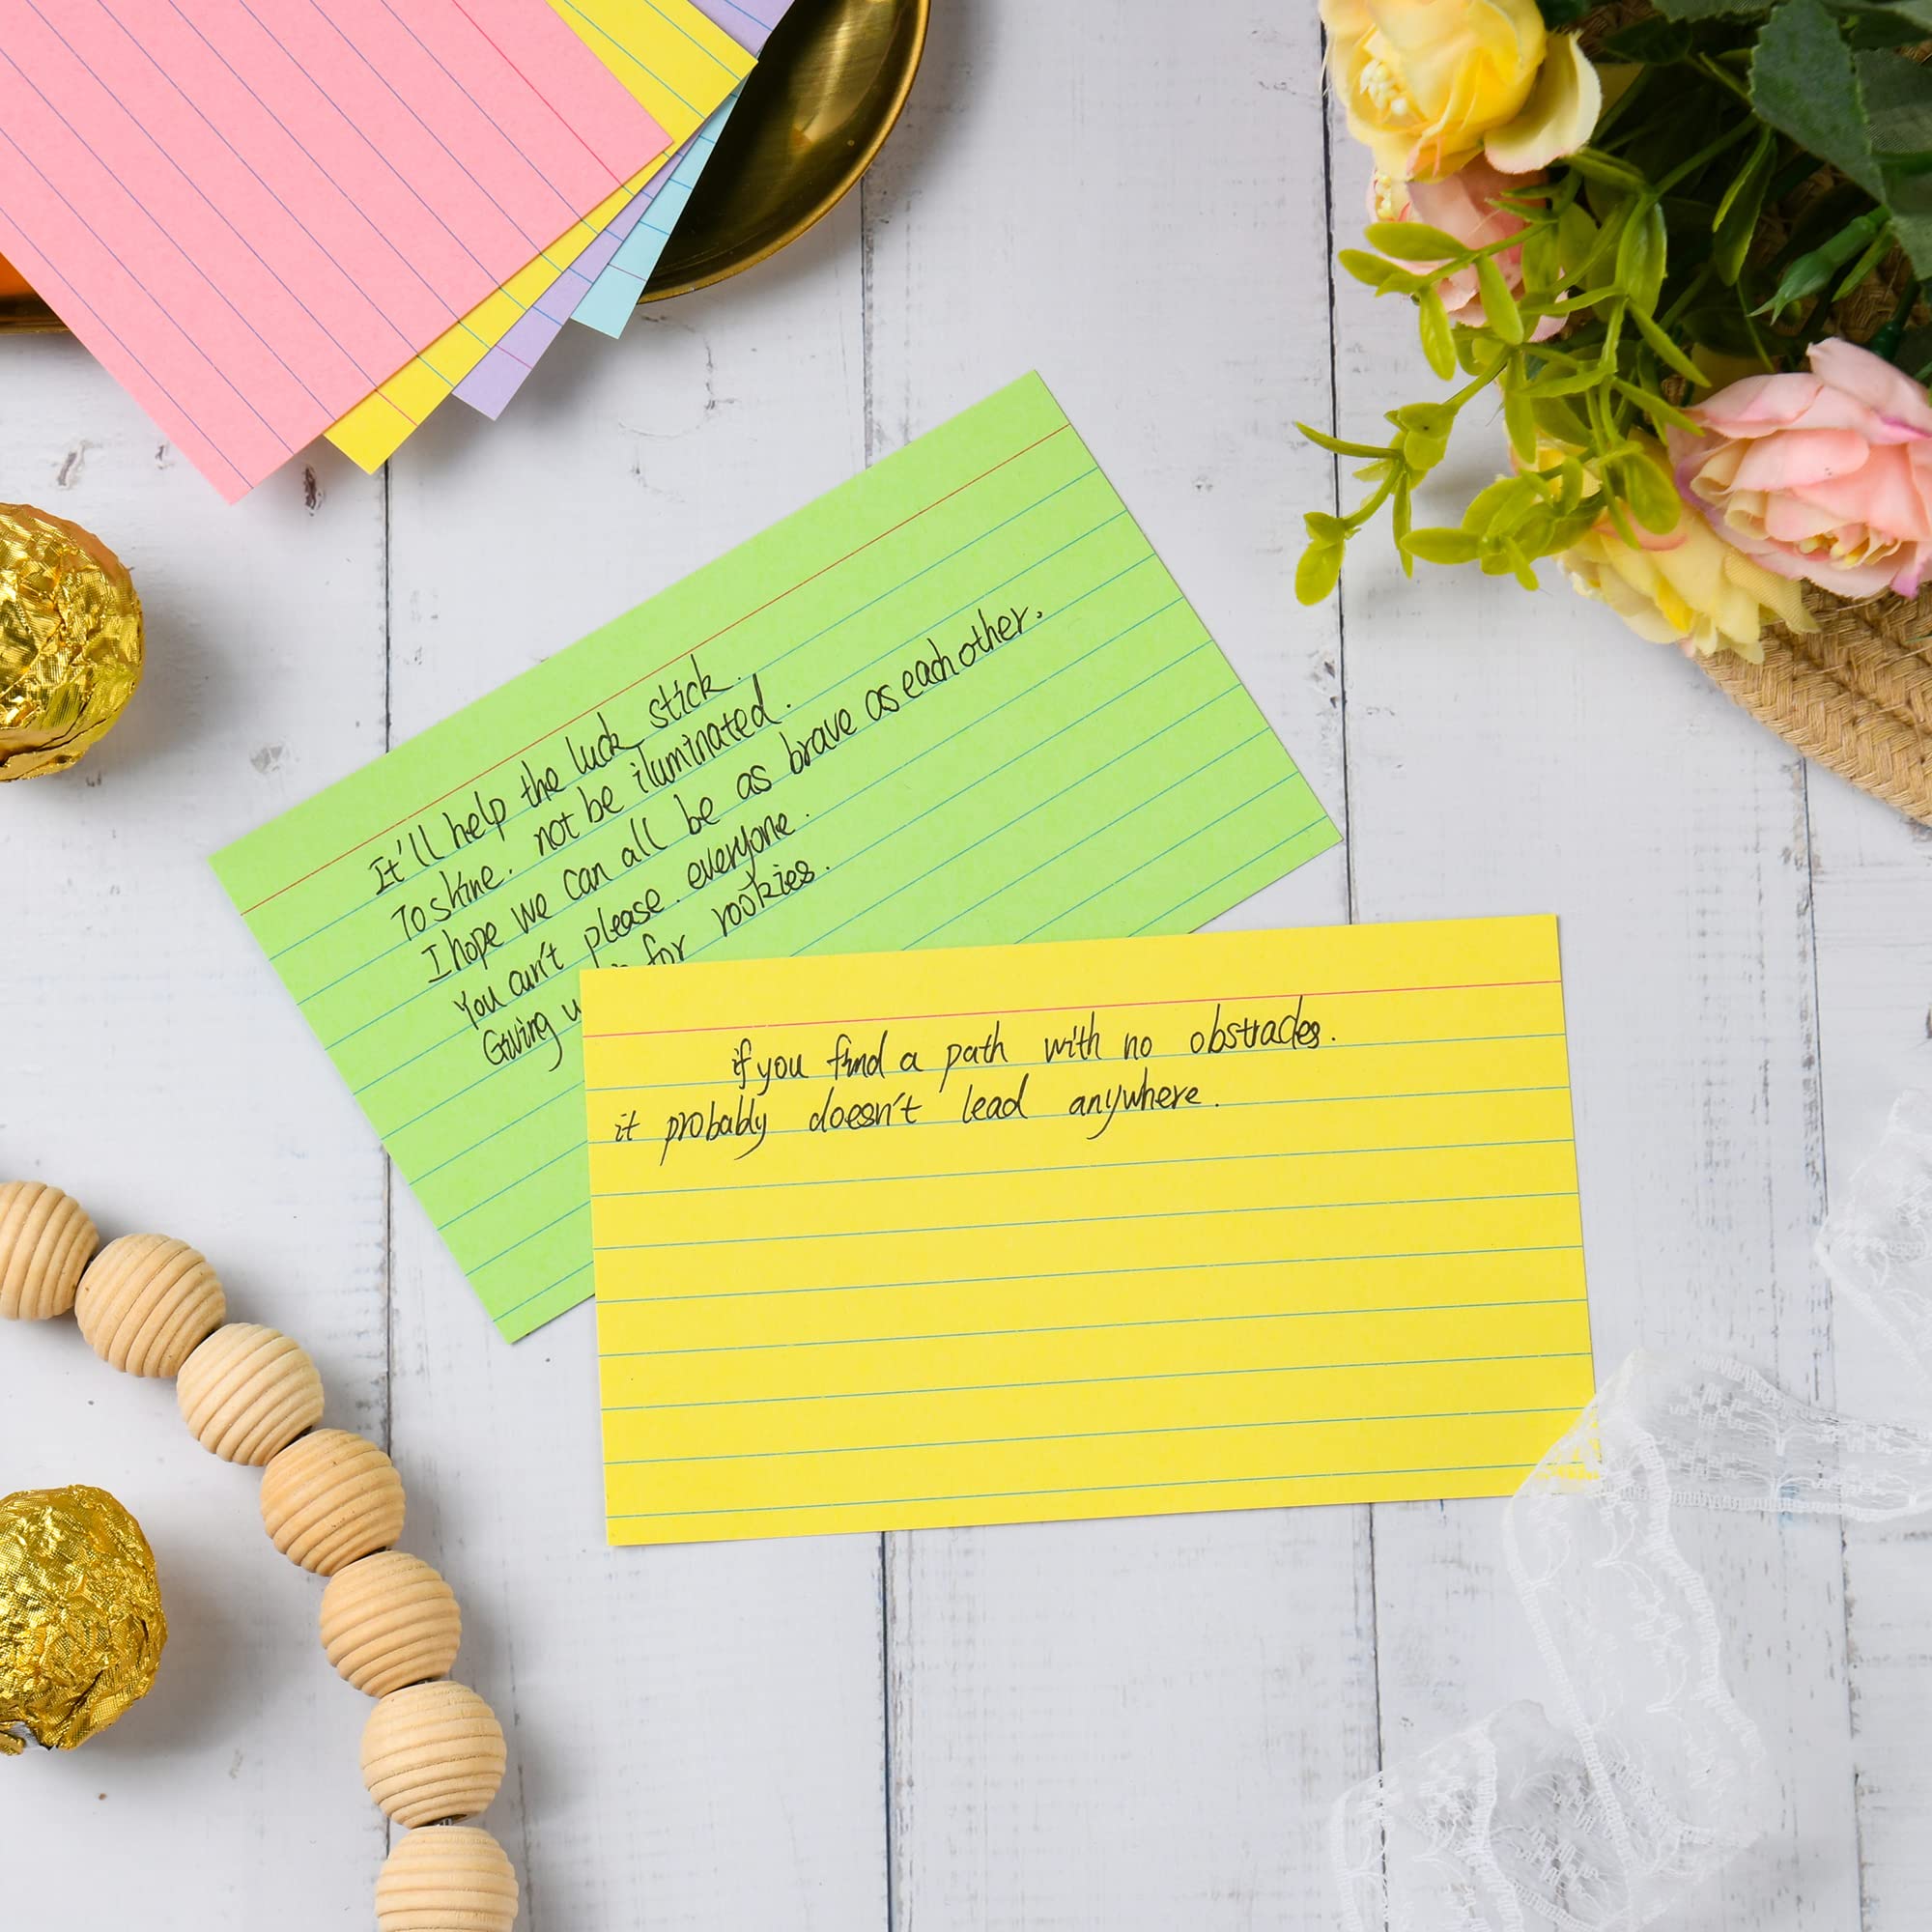 It'll help the luck stick.
To shine. not be iluminated.
I hope we can all be as brave as each other.
You can't please. everyone.
Giving for rookies.
if you find a path with no obstracles.
it probably doesn't lead anywhere.